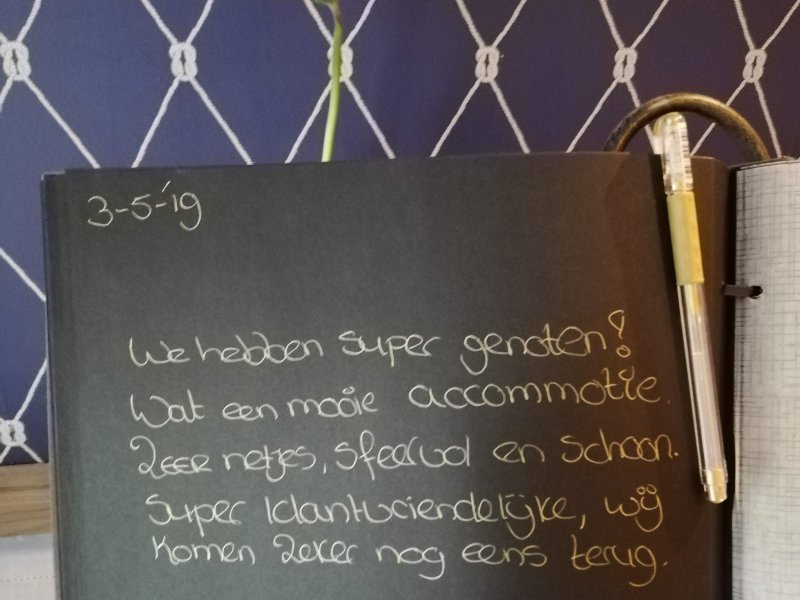 3-5-'19
We hebben super genoten!
Wat een mooie accommotie.
Zeer netjes, sfeervol en schoon.
Super klantvriendelijke, wij
komen zeker nog eens terug.